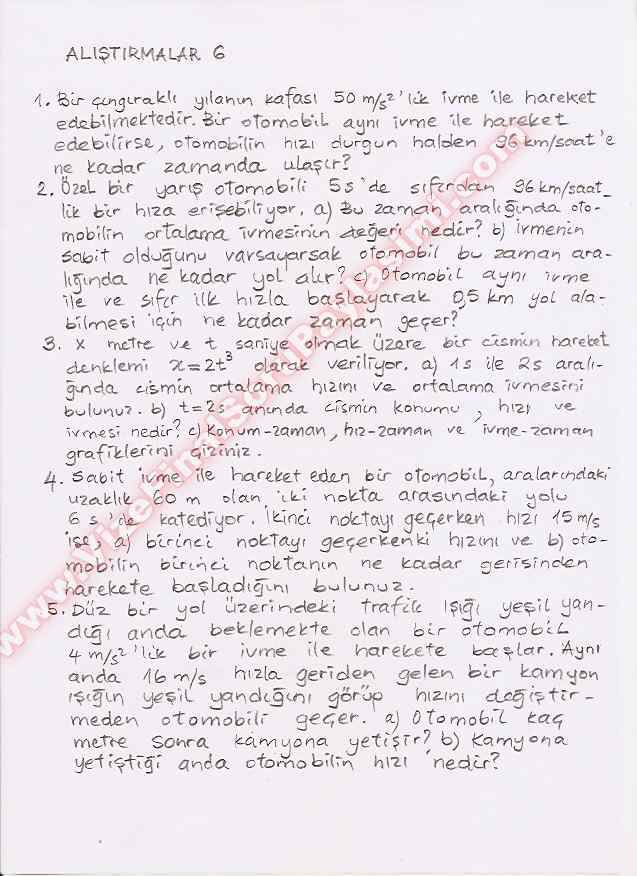 ALIŞTIRMALAR 6
1. Bir çıngıraklı yılanın kafası 50 m/s²'lik ivme ile hareket
edebilmektedir. Bir otomobil aynı ivme ile hareket
edebilirse, otomobilin hızı durgun halden 96 km/saat'e
ne kadar zamanda ulaşır?
2. Özel bir yarış otomobili 5s'de sıfırdan 96 km/saat_
lik bir hıza erişebiliyor. a) Bu zaman aralığında oto-
mobilin ortalama ivmesinin değeri nedir? b) İvmenin
sabit olduğunu varsayarsak otomobil bu zaman ara-
lığında ne kadar yol alır? c) Otomobil aynı ivme
ile ve sıfır ilk hızla başlayarak 0,5 km yol ala-
bilmesi için ne kadar zaman geçer?
3. x metre ve t saniye olmak üzere bir cismin hareket
denklemi x=2t³ olarak veriliyor. a) 1s ile 2s aralı-
ğında cismin ortalama hızını ve ortalama ivmesini
bulunuz. b) t=2s anında cismin konumu, hızı ve
ivmesi nedir? c) Konum-zaman, hız-zaman ve ivme-zaman
grafiklerini çiziniz.
4. Sabit ivme ile hareket eden bir otomobil, aralarındaki
uzaklık 60 m olan iki nokta arasındaki yolu
6 s'de katediyor. İkinci noktayı geçerken hızı 15 m/s
ise, a) birinci noktayı geçerkenki hızını ve b) oto-
mobilin birinci noktanın ne kadar gerisinden
harekete başladığını bulunuz.
5. Düz bir yol üzerindeki trafik ışığı yeşil yan-
dığı anda beklemekte olan bir otomobil
4 m/s²'lik bir ivme ile harekete başlar. Aynı
anda 16 m/s hızla geriden gelen bir kamyon
ışığın yeşil yandığını görüp hızını değiştir-
meden otomobili geçer. a) Otomobil kaç
metre sonra kamyona yetişir? b) Kamyona
yetiştiği anda otomobilin hızı nedir?
www.VizeFinalSoruPaylasimi.com